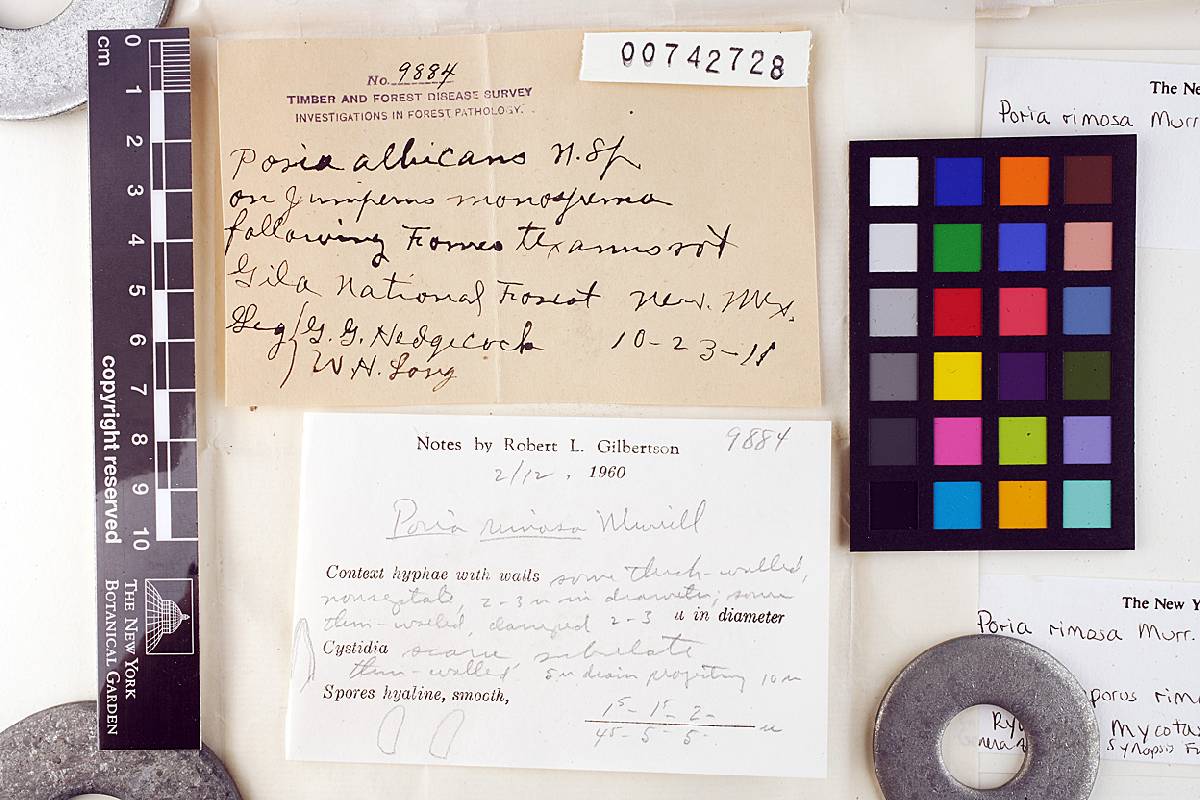 00742728
No. 9884
TIMBER AND FOREST DISEASE SURVEY
INVESTIGATIONS IN FOREST PATHOLOGY.
Poria albicans N. Sp
on Juniperus monosperma
following Fomes texanus rot
Gila National Forest New. Mex.
Leg G. G. Hedgecock 10-23-11
W. H. Long
Notes by Robert L. Gilbertson 9884
2/12, 1960
Poria rimosa Murrill
Context hyphae with walls some thick-walled,
nonseptate, 2-3 u in diameter; some
thin-walled, clamped 2-3 u in diameter
Cystidia subulate
thin-walled 5 u diam projecting 10 u
Spores hyaline, smooth,
cm
0 1 2 3 4 5 6 7 8 9 10
copyright reserved
THE NEW YORK
BOTANICAL GARDEN
The Ne
Poria rimosa Murr
The New Y
Poria rimosa Murr.
porus rimo
Ryv
Mycotax
nera
Synopsis F